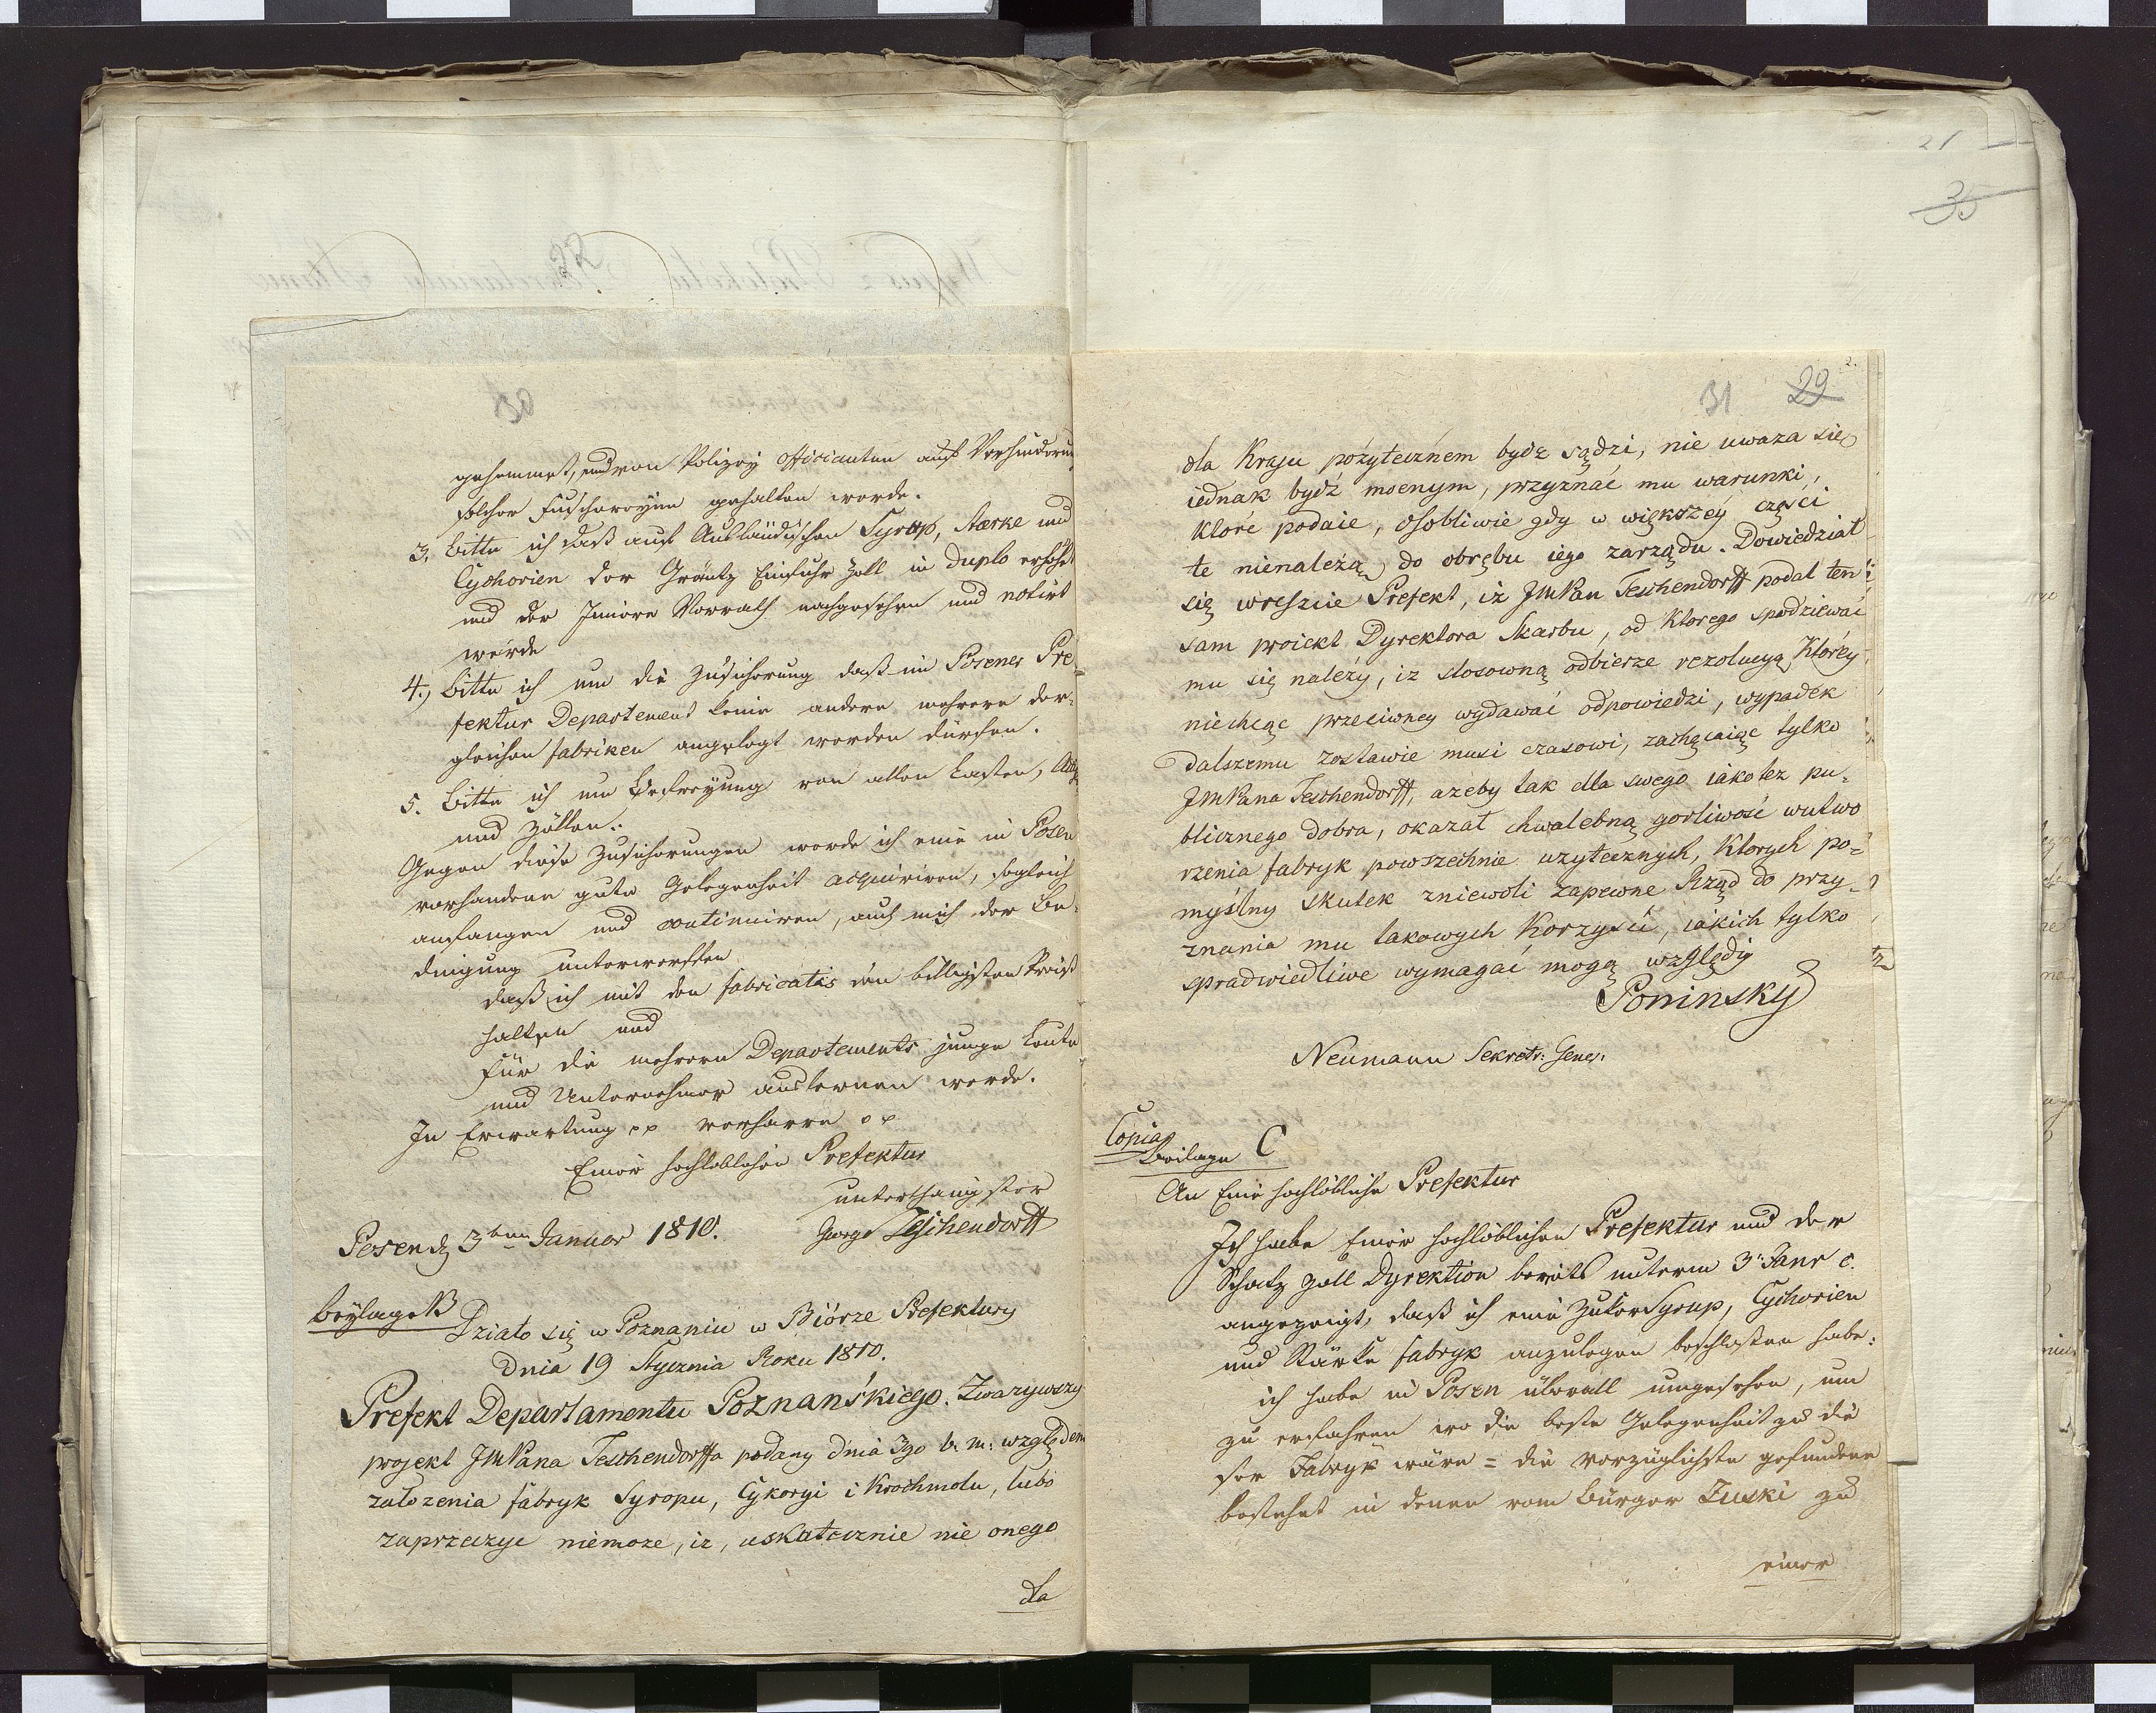 30
gehemmet, und von Polizey Officianten auf Verhinderung
solcher Fuschereyen gehalten werde.
3. Bitte ich daß auf Ausländischen Syrop, Stærke und
Cychorien der Gräntz Einfuhr Zoll in duplo erhöht
und der Innere Vorrath nachgesehen und notirt
werde
4., Bitte ich um die Zusicherung daß im Posener Pre-
fektur Departement keine andere mehrere der-
gleichen fabriken angelegt werden dürfen.
5. Bitte ich um Befreyung von allen Lasten,
und Zöllen.
Gegen diese Zusicherungen werde ich eine in Posen
vorhandene gute Gelegenheit acquiriren, sogleich
anfangen und continuiren, auch mich der Be-
dingung unterwerffen
daß ich mit den fabricatis den billigsten Preiß
halten und
für die mehrern Departements junge Leute
und Unternehmer auslernen werde.
In Erwartung pp verharre pp
Einer hochloblichen Prefektur
unterthänigster
Posen d 3ten Januar 1810. George Teschendorff
Beylage B
Działo się w Poznaniu w Biórze Prefektury
Dnia 19 Stycznia Roku 1810.
Prefekt Departamentu Poznańskiego. Zwazywszy
projekt JmPana Teschendorffa podany dnia 3go b. m: względem
załozenia fabryk Syropu, Cykoryi i Krochmolu, lubo
zaprzeczyc niemoze, iz, uskutecznie nie onego
dla
21
35
31 29
2.
dla Kraju pożytecznem bydz sądzi, nie uwaza się
iednak bydź mocnym, przyznać mu warunki,
ktore podaie, osobliwie gdy w większéy części
te nienależą do obrębu iego zarządu. Dowiedział
się wreszcie Prefekt, iz JmPan Teschendorff podal ten
sam proiekt Dyrektora Skarbu, od Ktorego spodziewać
mu się należy, iz stosowną odbierze rezolucyą, Któréy
niechcąc przeciwney wydawać odpowiedzi, wypadek
dalszemu zostawie musi czasowi, zachęcaiąc tylko
JmPana Teschendorff, azeby tak dla swego iako tez pu-
blicznego dobra, okazał chwalebną gorliwość wutwo
rzenia fabryk powszechnie uzytecznych, Ktorych po-
myślny skutek zniewoli zapewne Rząd do przy-
znania mu takowych Korzyści, iakich tylko
spradwiedliwe wymagać mogą względy
Poninsky
Neumann Sekretr: Gener.
Copia
Beilage C
An Eine hochlöbliche Prefektur
Ich habe Einer hochlöblichen Prefektur und der
Schatz Zoll Dyrektion bereits unterm 3" Janr c.
angezeigt, daß ich eine ZukerSyrup, Cychorien
und Stärke fabryk anzulegen beschlossen habe:
ich habe in Posen überall umgesehen, um
zu erfahren wo die beste Gelegenheit zu die
ser Fabryk wäre = die vorzüglichste gefundene
bestehet in denen vom Bürger Zuski zu
einer